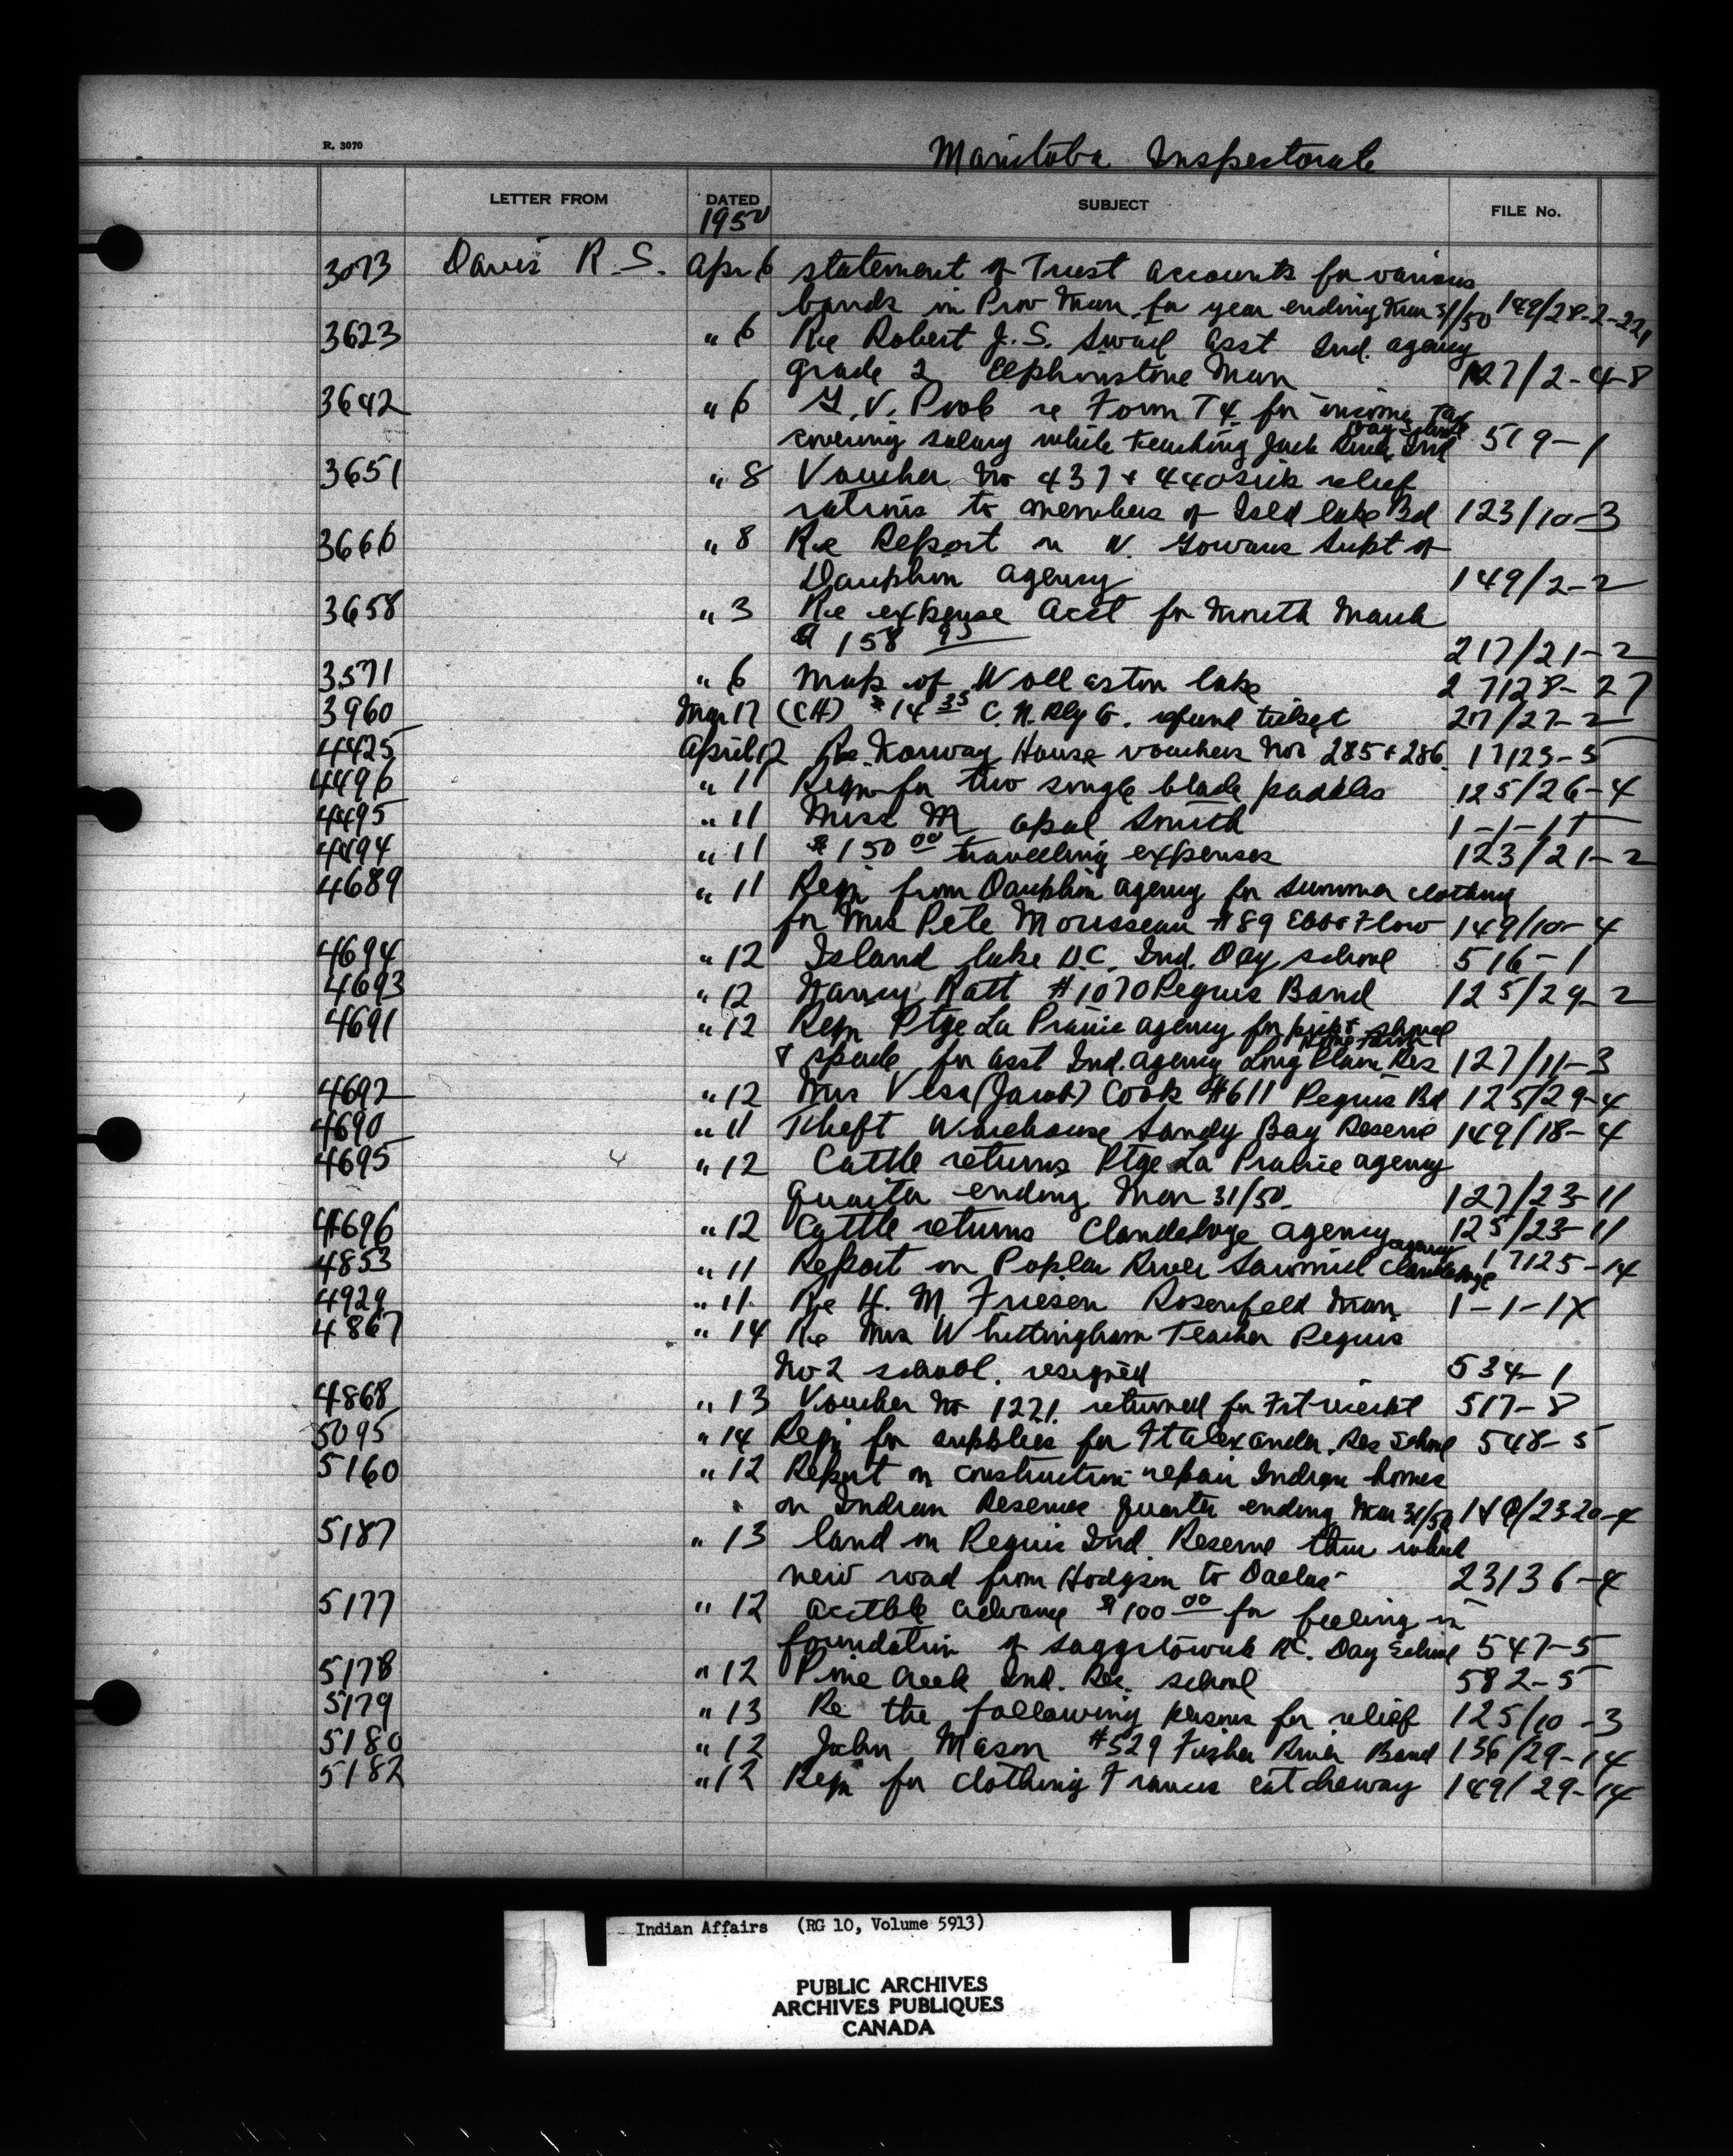 R. 3070
Manitoba Inspectorate
LETTER FROM DATED SUBJECT FILE No.
1950
3073 Davis R. S. Apr 6 statement of Trust Accounts for various
bands in Prov Man for year ending Mar 31/50 149/28-2-221
3623 " 6 Re Robert J. S. asst Ind. agency
grade 2 Elphinstone Man 127/2-4-8
3642 " 6 G. V. re Form T4 for income Tax
covering salary while teaching Jack River Ind Day School 519-1
3651 " 8 Voucher No 437 + 440 sick relief
rations to members of Isld lake Bd 123/10-3
3666 " 8 Re Report re N. Gowans Supt of
Dauphin agency 149/2-2
3658 " 3 Re expense acct for month March
$ 158 95 217/21-2
3571 " 6 Map of Wollaston lake 27128-27
3960 Mar 17 (CH) $14 35 C. N. Rly Co. refund ticket 27/27-2
4425 April 12 Re. Norway House vouchers Nos 285 + 286 17123-5
4496 " 11 Reqn for two single blade paddles 125/26-4
4495 " 11 Miss M opal Smith 1-1-1
4494 " 11 $150 00 travelling expenses 123/21-2
4689 " 11 Reqn from Dauphin agency for summer clothing
for Mrs Pete Mousseau #89 Ebb & Flow 149/10-4
4694 " 12 Island lake U.C. Ind. Day school 516-1
4693 " 12 Nancy Ratt #1070 Peguis Band 125/29-2
4691 " 12 Reqn Ptge La Prairie agency for shovel
& spade for asst Ind. agency Long Plain Res 127/11-3
4692 " 12 Mrs (Jacob) Cook #611 Peguis Bd 125/29-4
4690 " 11 Theft Warehouse Sandy Bay Reserve 149/18-4
4695 " 12 Cattle returns Ptge La Prairie agency
quarter ending Mar 31/50. 127/23-11
4696 " 12 Cattle returns Clandeboye agency 125/23-11
4853 " 11 Report on Poplar River Sawmill Clandeboye agency 17125-14
4929 " 11 Re H. M Friesen Rosenfeld Man 1-1-1X
4867 " 14 Re Mrs Whittingham Teacher Peguis
No 2 school. resigned 534-1
4868 " 13 Voucher No 1221. returned for Frt receipt 517-8
5095 " 14 Reqn for supplies for Ft Alexander. Res School 548-5
5160 " 12 Report on construction repair Indian homes
on Indian Reserves quarter ending Mar 31/50 /23-20-4
5187 " 13 land on Peguis Ind. Reserve thru which
new road from Hodgson to Dallas 23136-4
5177 " 12 acctble advance $100 00 for filling in
foundation of R.C. Day School 547-5
5178 " 12 Pine Creek Ind. Res. school 582-5
5179 " 13 Re the following persons for relief 125/10-3
5180 " 12 John Mason #529 Fisher River Band 136/29-14
5182 " 12 Reqn for clothing Francis catcheway 149/29-14
Indian Affairs (RG 10, Volume 5913)
PUBLIC ARCHIVES
ARCHIVES PUBLIQUES
CANADA